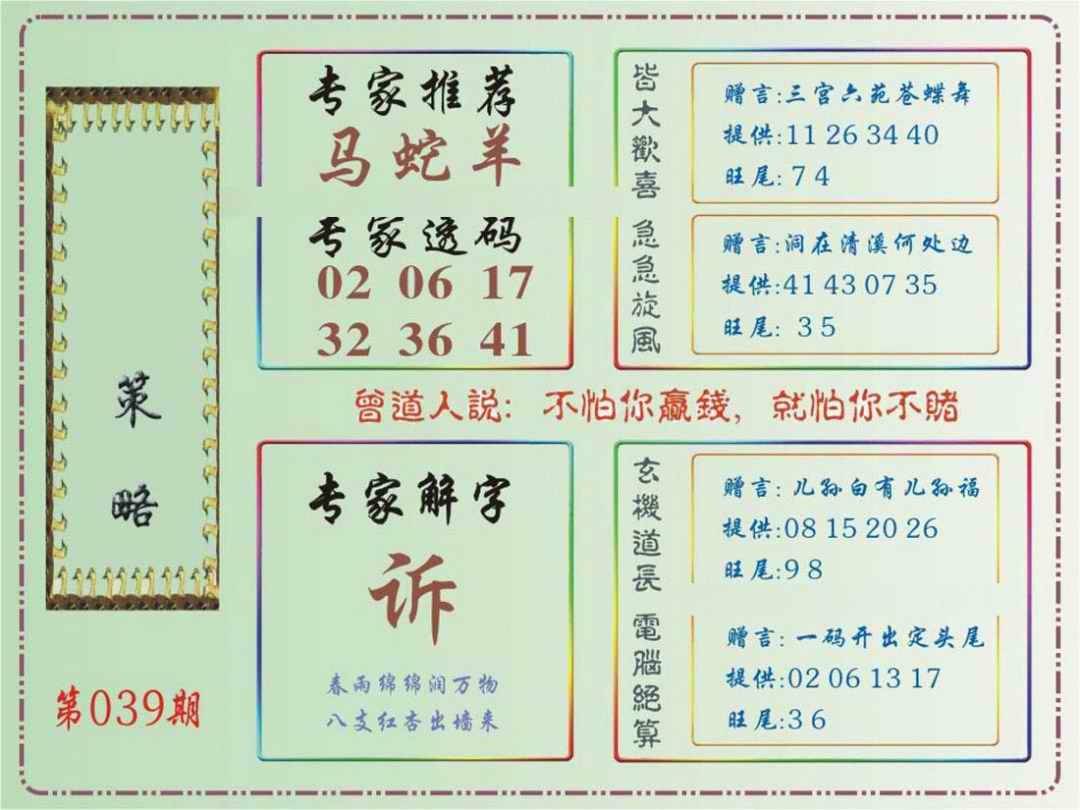 策略
第039期
专家推荐
马蛇羊
专家透码
02 06 17
32 36 41
皆大歡喜
赠言:三宫六苑苍蝶舞
提供:11 26 34 40
旺尾: 7 4
急急旋風
赠言:洞在清溪何处边
提供:41 43 07 35
旺尾: 3 5
曾道人説: 不怕你贏錢, 就怕你不賭
专家解字
诉
春雨绵绵润万物
八支红杏出墙来
玄機道長
赠言: 儿孙自有儿孙福
提供:08 15 20 26
旺尾:9 8
電腦絕算
赠言: 一码开出定头尾
提供:02 06 13 17
旺尾:3 6